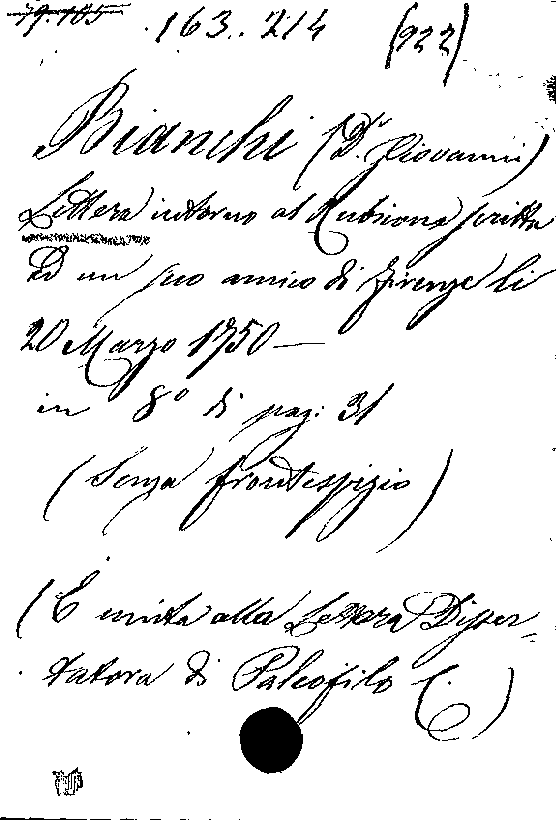 79.105 163..214 (922)
Bianchi (Dr. Giovanni)
Lettera intorno al Rubicone scritta
ad un suo amico di Firenze li
20 Marzo 1750 —
in 8° di pag: 31
(Senza frontespizio)
(È unita alla Lettera Disser-
tatora di Paleofilo C.)